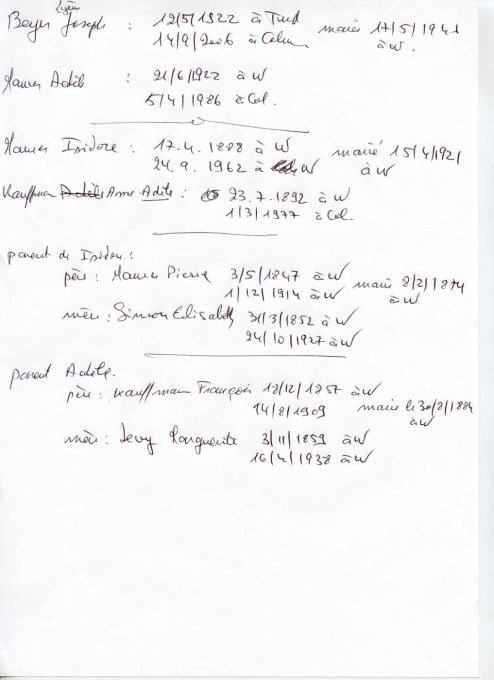 Beyer Joseph : 12/5/1922 à marié 17/5/194
14/9/2006 à à W.
Maurer Adèle : 21/6/1922 à W
5/4/1986 à Col.
Maurer Isidore : 17.4.1888 à W marié 15/4/1921
24.9.1962 à W à W
Kauffman Adèle Anne Adèle : 23.7.1892 à W
1/3/1977 à Col.
parent de Isidore :
père : Maurer Pierre 3/5/1847 à W marié 8/2/1874
1/12/1914 à W à W
mère : Simon Elisabeth 31/3/1852 à W
24/10/1927 à W
parent Adèle.
père : Kauffman François 12/12/1857 à W
14/8/1909 marié le 30/8/1884
à W
mère : Levy Marguerite 3/11/1859 à W
16/4/1938 à W